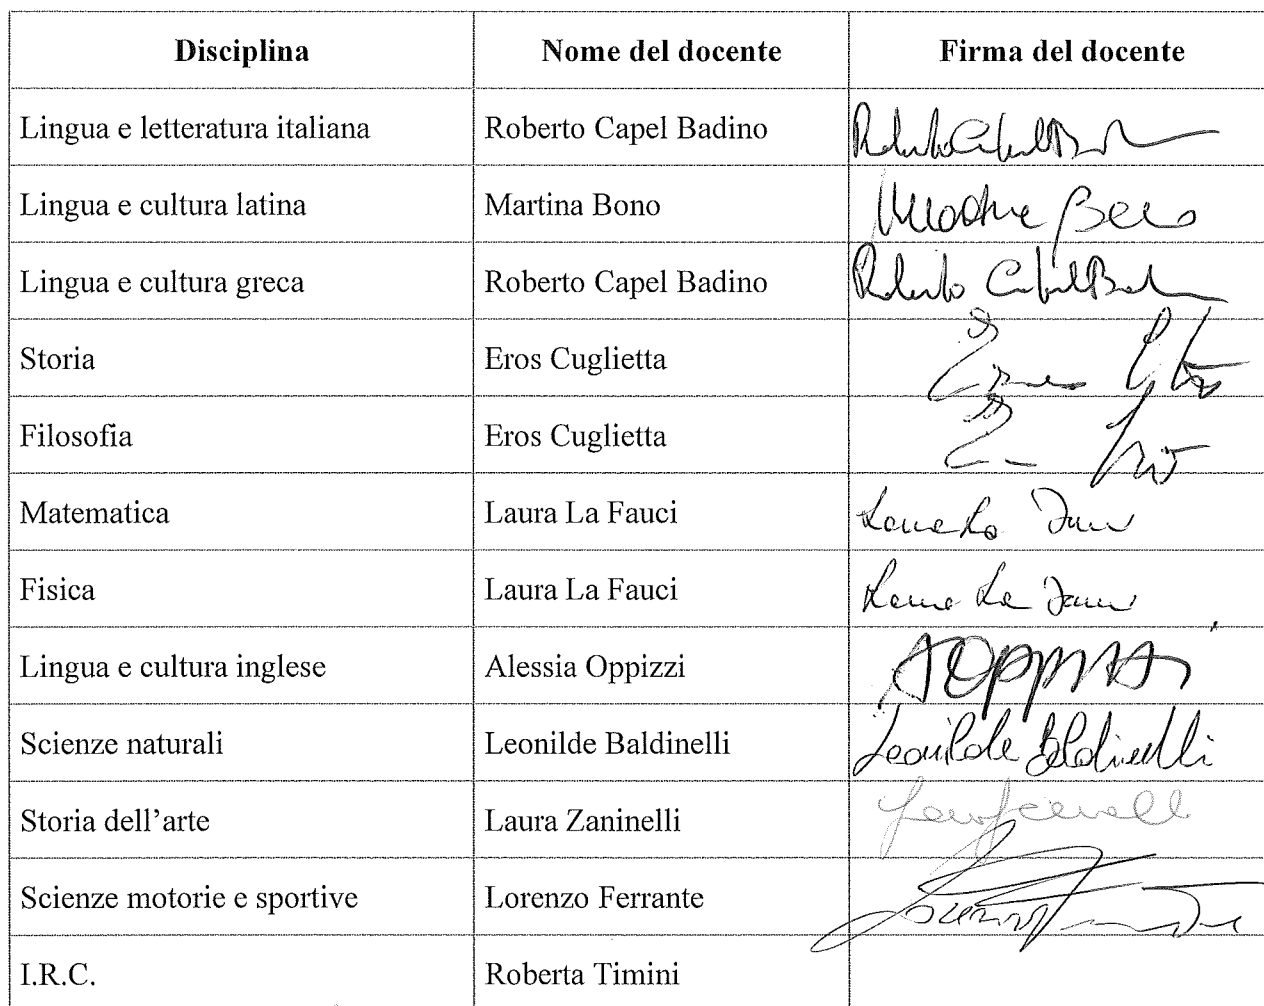 Disciplina Nome del docente Firma del docente
Lingua e letteratura italiana Roberto Capel Badino Roberto Capel Badino
Lingua e cultura latina Martina Bono
Lingua e cultura greca Roberto Capel Badino Roberto Capel Badino
Storia Eros Cuglietta
Filosofia Eros Cuglietta
Matematica Laura La Fauci
Fisica Laura La Fauci
Lingua e cultura inglese Alessia Oppizzi A Oppizzi
Scienze naturali Leonilde Baldinelli Leonilde Baldinelli
Storia dell'arte Laura Zaninelli
Scienze motorie e sportive Lorenzo Ferrante
I.R.C. Roberta Timini